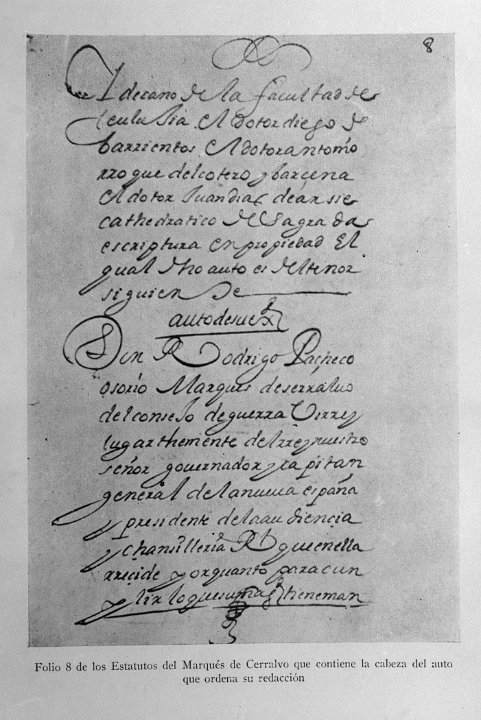 8
y decano de la facultad de
teulusia el dotor diego de
barrientos el dotor antonio
rroque del cotero y barçena
el dotor Juan dias de arsie
cathedratico de sagrada
escriptura en propiedad El
qual dho auto es del tenor
siguien De
auto de su exa
Don Rodrigo Pacheco
osorio Marques de serraluo
del consejo de guerra Virrey
lugarthemente del rrey nuestro
señor governador y capitan
general de la nueua españa
y presidente de la audiencia
y chansilleria Rl que en ella
rreside y orquanto para cun
plir lo que su magd thene man
Folio 8 de los Estatutos del Marqués de Cerralvo que contiene la cabeza del auto
que ordena su redacción